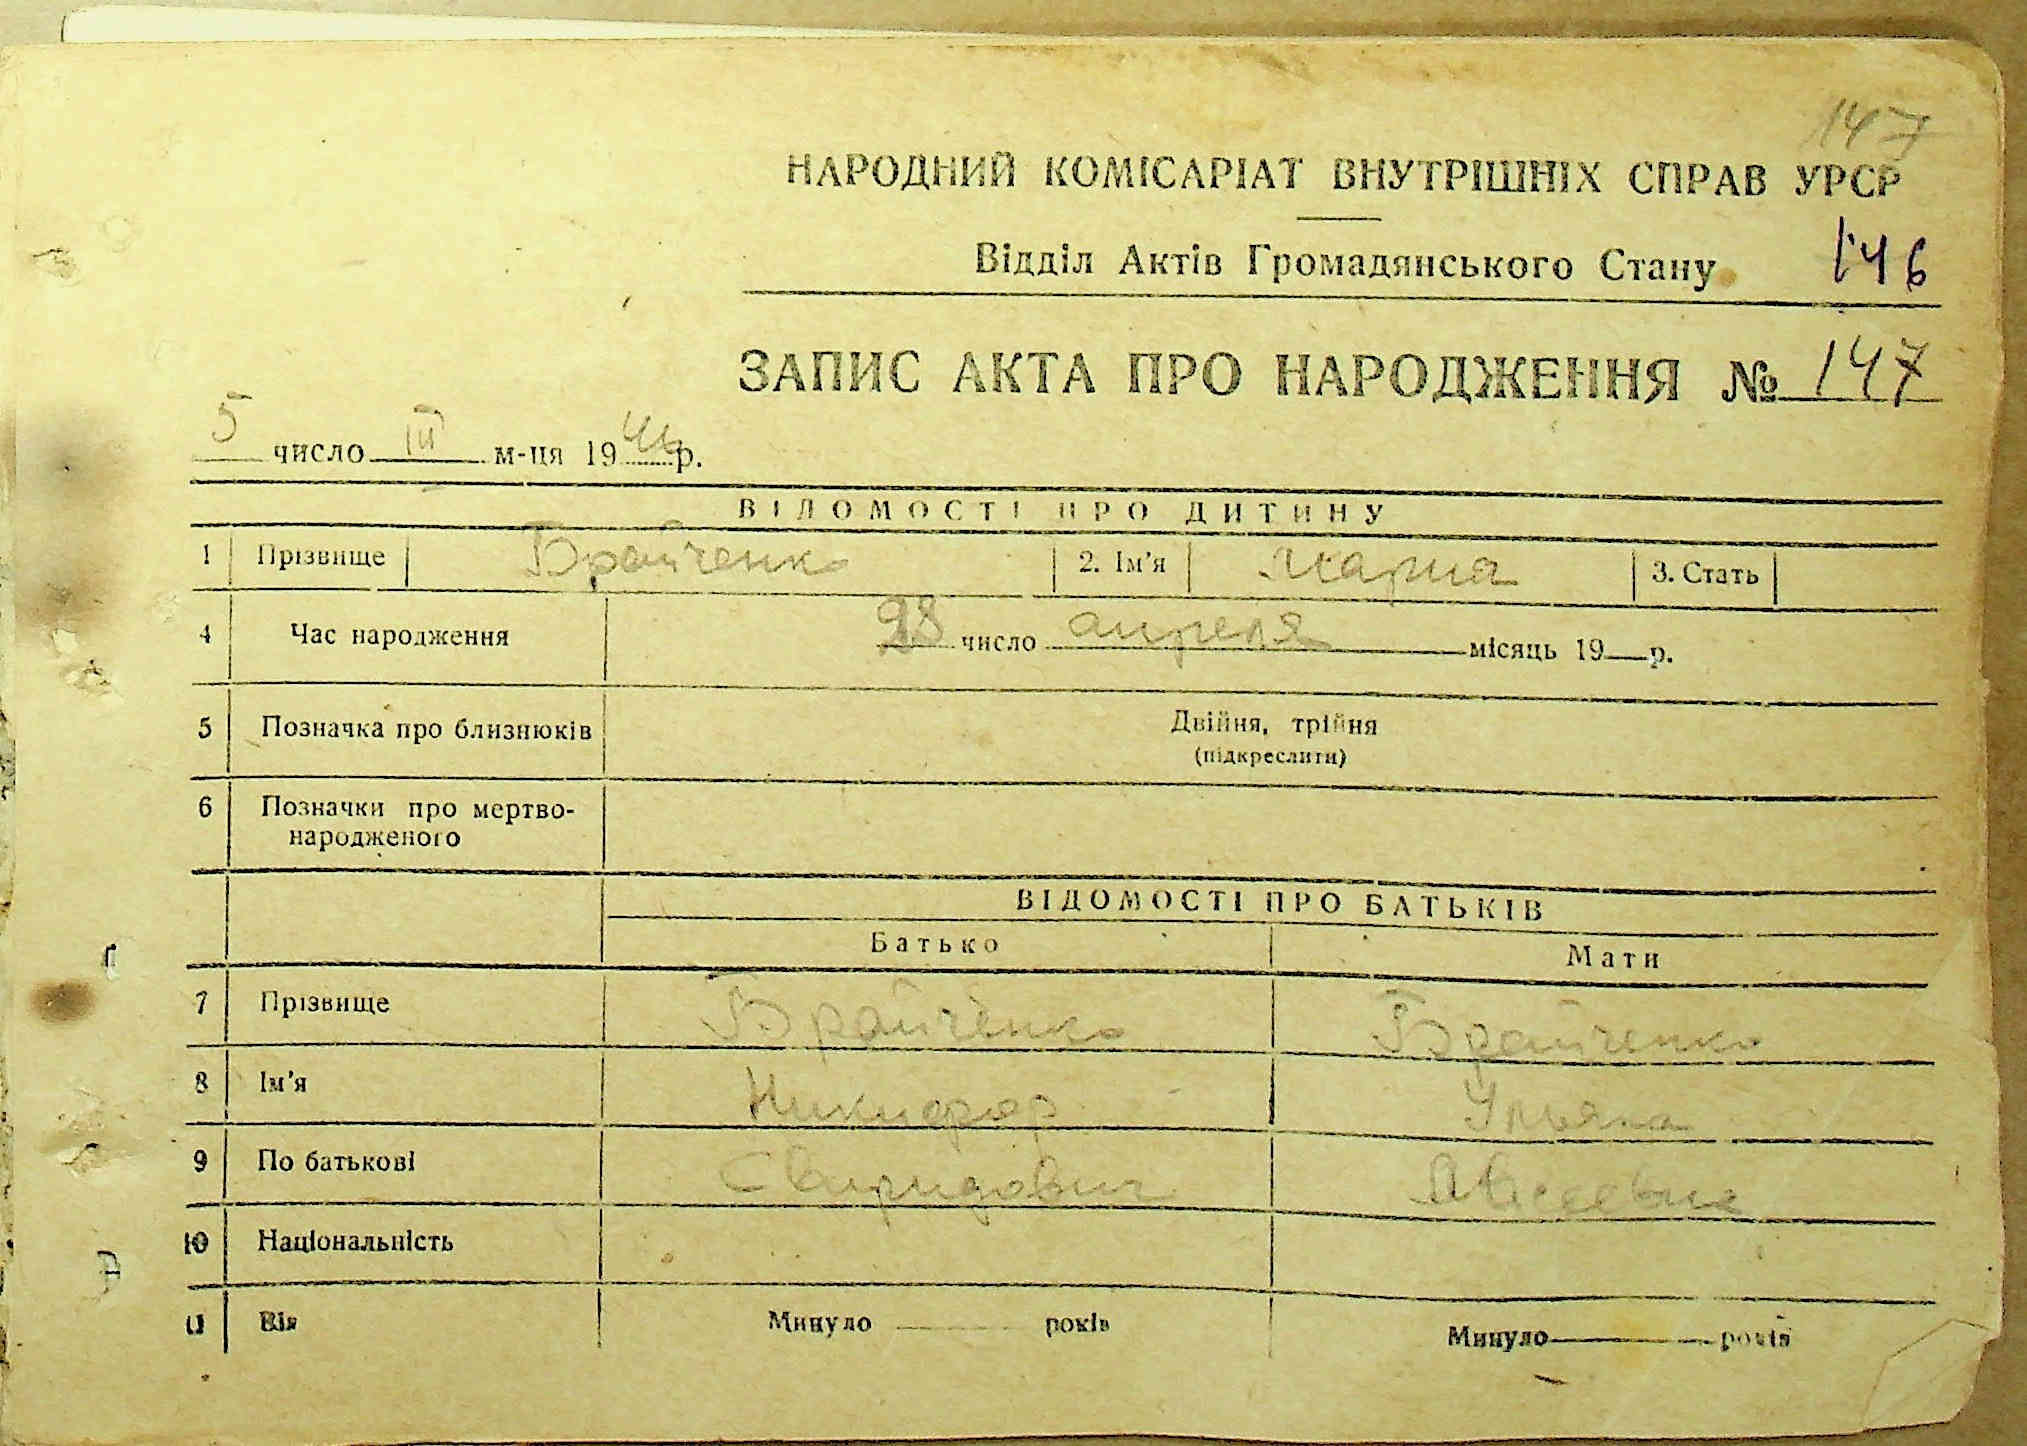 147
НАРОДНИЙ КОМІСАРІАТ ВНУТРІШНІХ СПРАВ УРСР
Відділ Актів Громадянського Стану 146
ЗАПИС АКТА ПРО НАРОДЖЕННЯ № 147
5 число III м-ця 1944 р.
ВІДОМОСТІ ПРО ДИТИНУ
1 Прізвище Брайченко 2. Ім’я Мария 3. Стать
4 Час народження 28 число апреля місяць 19 р.
5 Позначка про близнюків Двійня, трійня
(підкреслити)
6 Позначки про мертво-
народженого
ВІДОМОСТІ ПРО БАТЬКІВ
Батько Мати
7 Прізвище Брайченко Брайченко
8 Ім’я Никифор Ульяна
9 По батькові Свиридович
10 Національність
11 Вік Минуло років Минуло років